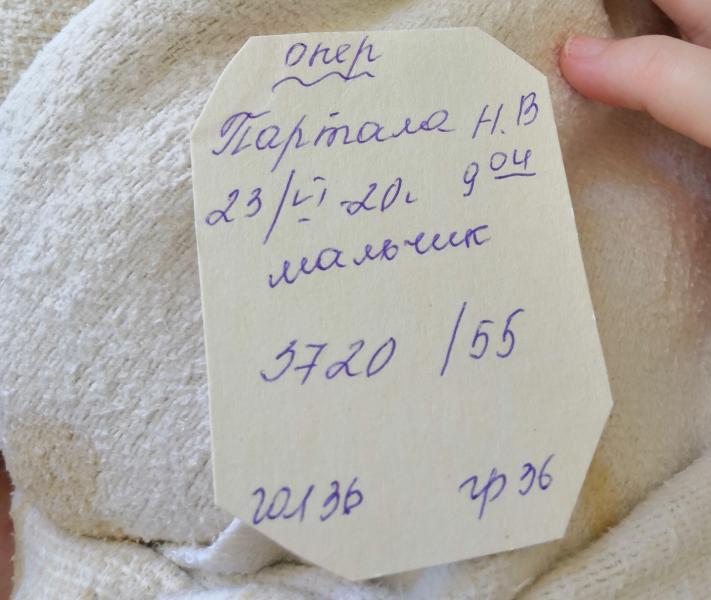 опер
Партала Н.В
23/VI-20г 9 04
мальчик
3720 /55
гол 36 гр 36